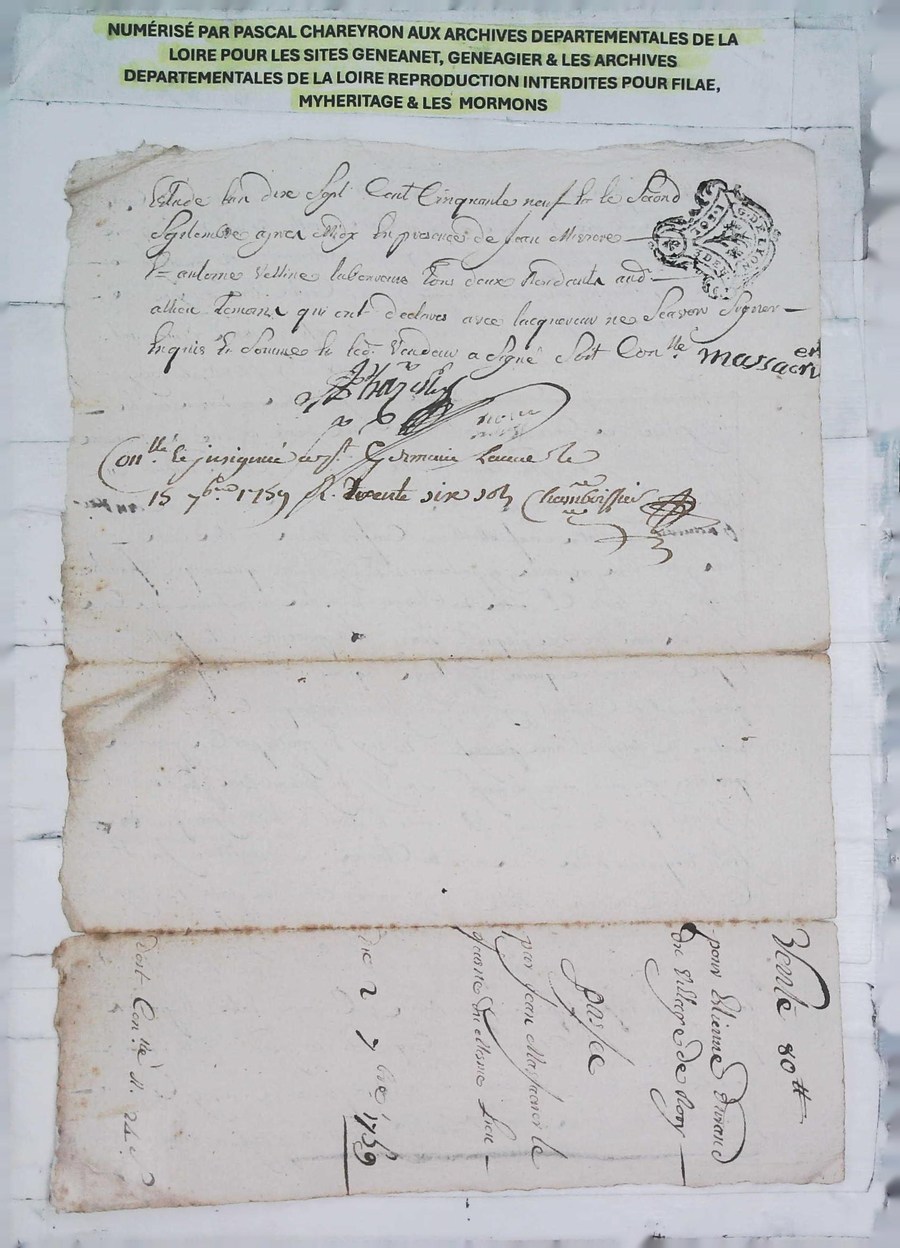 NUMÉRISÉ PAR PASCAL CHAREYRON AUX ARCHIVES DEPARTEMENTALES DE LA
LOIRE POUR LES SITES GENEANET, GENEAGIER & LES ARCHIVES
DEPARTEMENTALES DE LA LOIRE REPRODUCTION INTERDITES POUR FILAE,
MYHERITAGE & LES MORMONS
Estude lan dix Sept Cent Cinquante neuf & le Second
Septembre apres Midy En presence de Jean
& antoine laboureurs tous deux
temoins qui ont declares avec lacquereur ne Scavoir Signer
Enquis & Sommé & led. Vendeur a Signé Soit Con.llé
massacri er
G. DE LYON
DEN
Con.llé & insinué a St. Germain Laval le
15 7bre 1759 R. trente six sols Chamboissier
Vente 80#
pour Etienne Durand
du Village de
passée
par Jean
du Mesme Lieu
Du 2 7bre 1759
Soit Con.llé